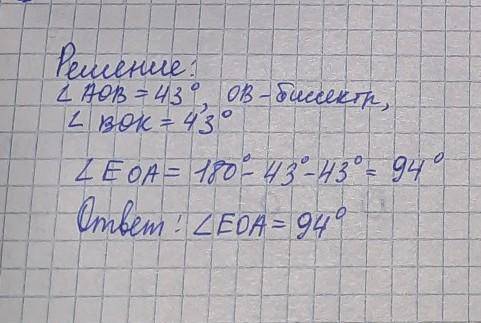 Решение:
∠ AOB = 43°, OB - биссектр,
∠ BOK = 43°
∠ EOA = 180° - 43° - 43° = 94°
Ответ: ∠EOA = 94°